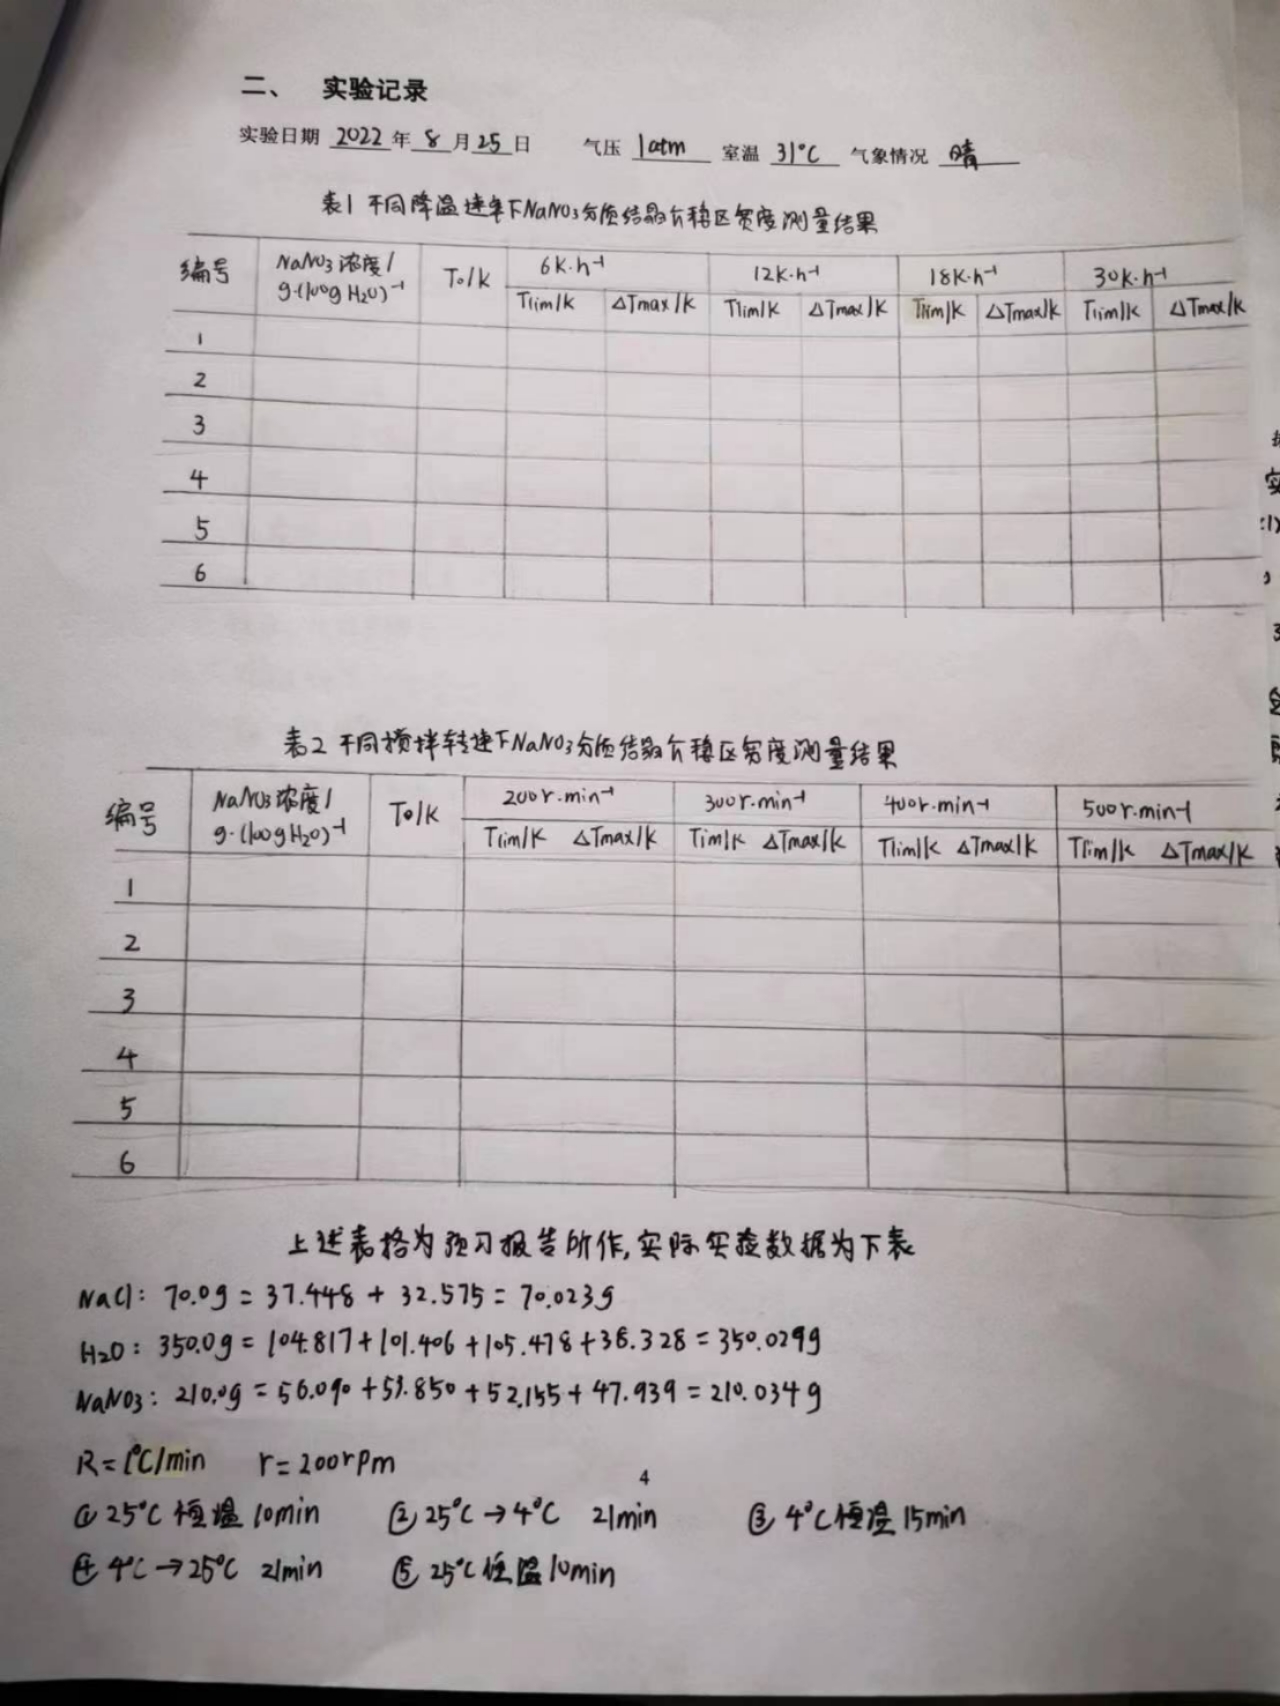 二、 实验记录
实验日期 2022 年 8 月 25 日 气压 1atm 室温 31°C 气象情况 晴
表1 不同降温速率下NaNO3介质结晶介稳区宽度测量结果
编号 NaNO3浓度/ g·(100g H2O)⁻¹ T0/K 6K·h⁻¹ 12K·h⁻¹ 18K·h⁻¹ 30K·h⁻¹
Tlim/K ΔTmax/K Tlim/K ΔTmax/K Tlim/K ΔTmax/K Tlim/K ΔTmax/K
1
2
3
4
5
6
表2 不同搅拌转速下NaNO3介质结晶介稳区宽度测量结果
编号 NaNO3浓度/ g·(100gH2O)⁻¹ T0/K 200r·min⁻¹ 300r·min⁻¹ 400r·min⁻¹ 500r·min⁻¹
Tlim/K ΔTmax/K Tim/K ΔTmax/K Tlim/K ΔTmax/K Tlim/K ΔTmax/K
1
2
3
4
5
6
上述表格为预习报告所作,实际实验数据为下表
NaCl: 70.0g = 37.448 + 32.575 = 70.023g
H2O: 350.0g = 104.817+101.406+105.478+38.328 = 350.029g
NaNO3: 210.0g = 56.090+53.850+52.155+47.939 = 210.034g
R=1°C/min r=200rpm
4
① 25°C 恒温 10min ② 25°C→4°C 21min ③ 4°C恒温 15min
④ 4°C→25°C 21min ⑤ 25°C 恒温 10min